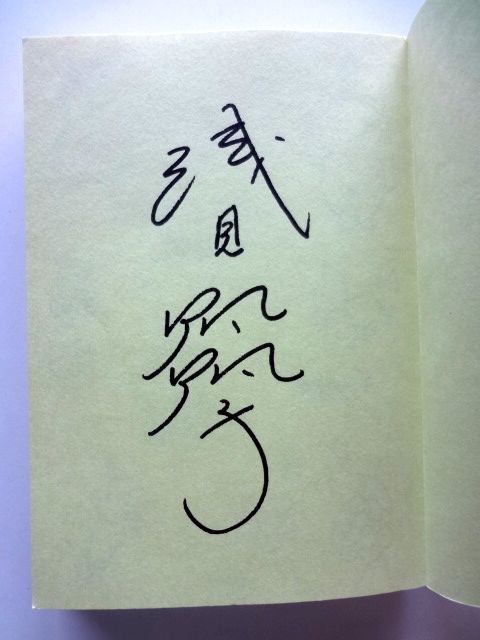 浅見帆帆子